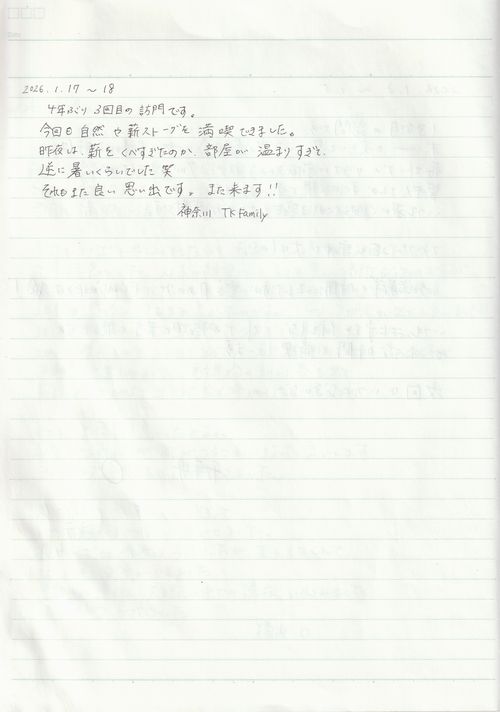 2026.1.17 ～ 18
4年ぶり 3回目の訪問です。
今回も自然や薪ストーブを満喫できました。
昨夜は、薪をくべすぎたのか、部屋が温まりすぎて、
逆に暑いくらいでした 笑
それもまた良い思い出です。また来ます!!
神奈川 TK Family